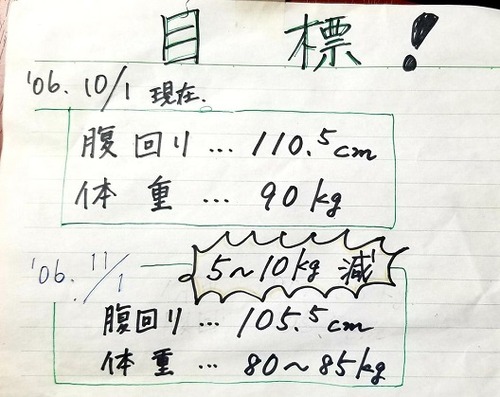 目標！
'06. 10/1 現在.
腹回り... 110.5cm
体重... 90kg
'06. 11/1
5～10kg 減
腹回り... 105.5cm
体重... 80～85kg